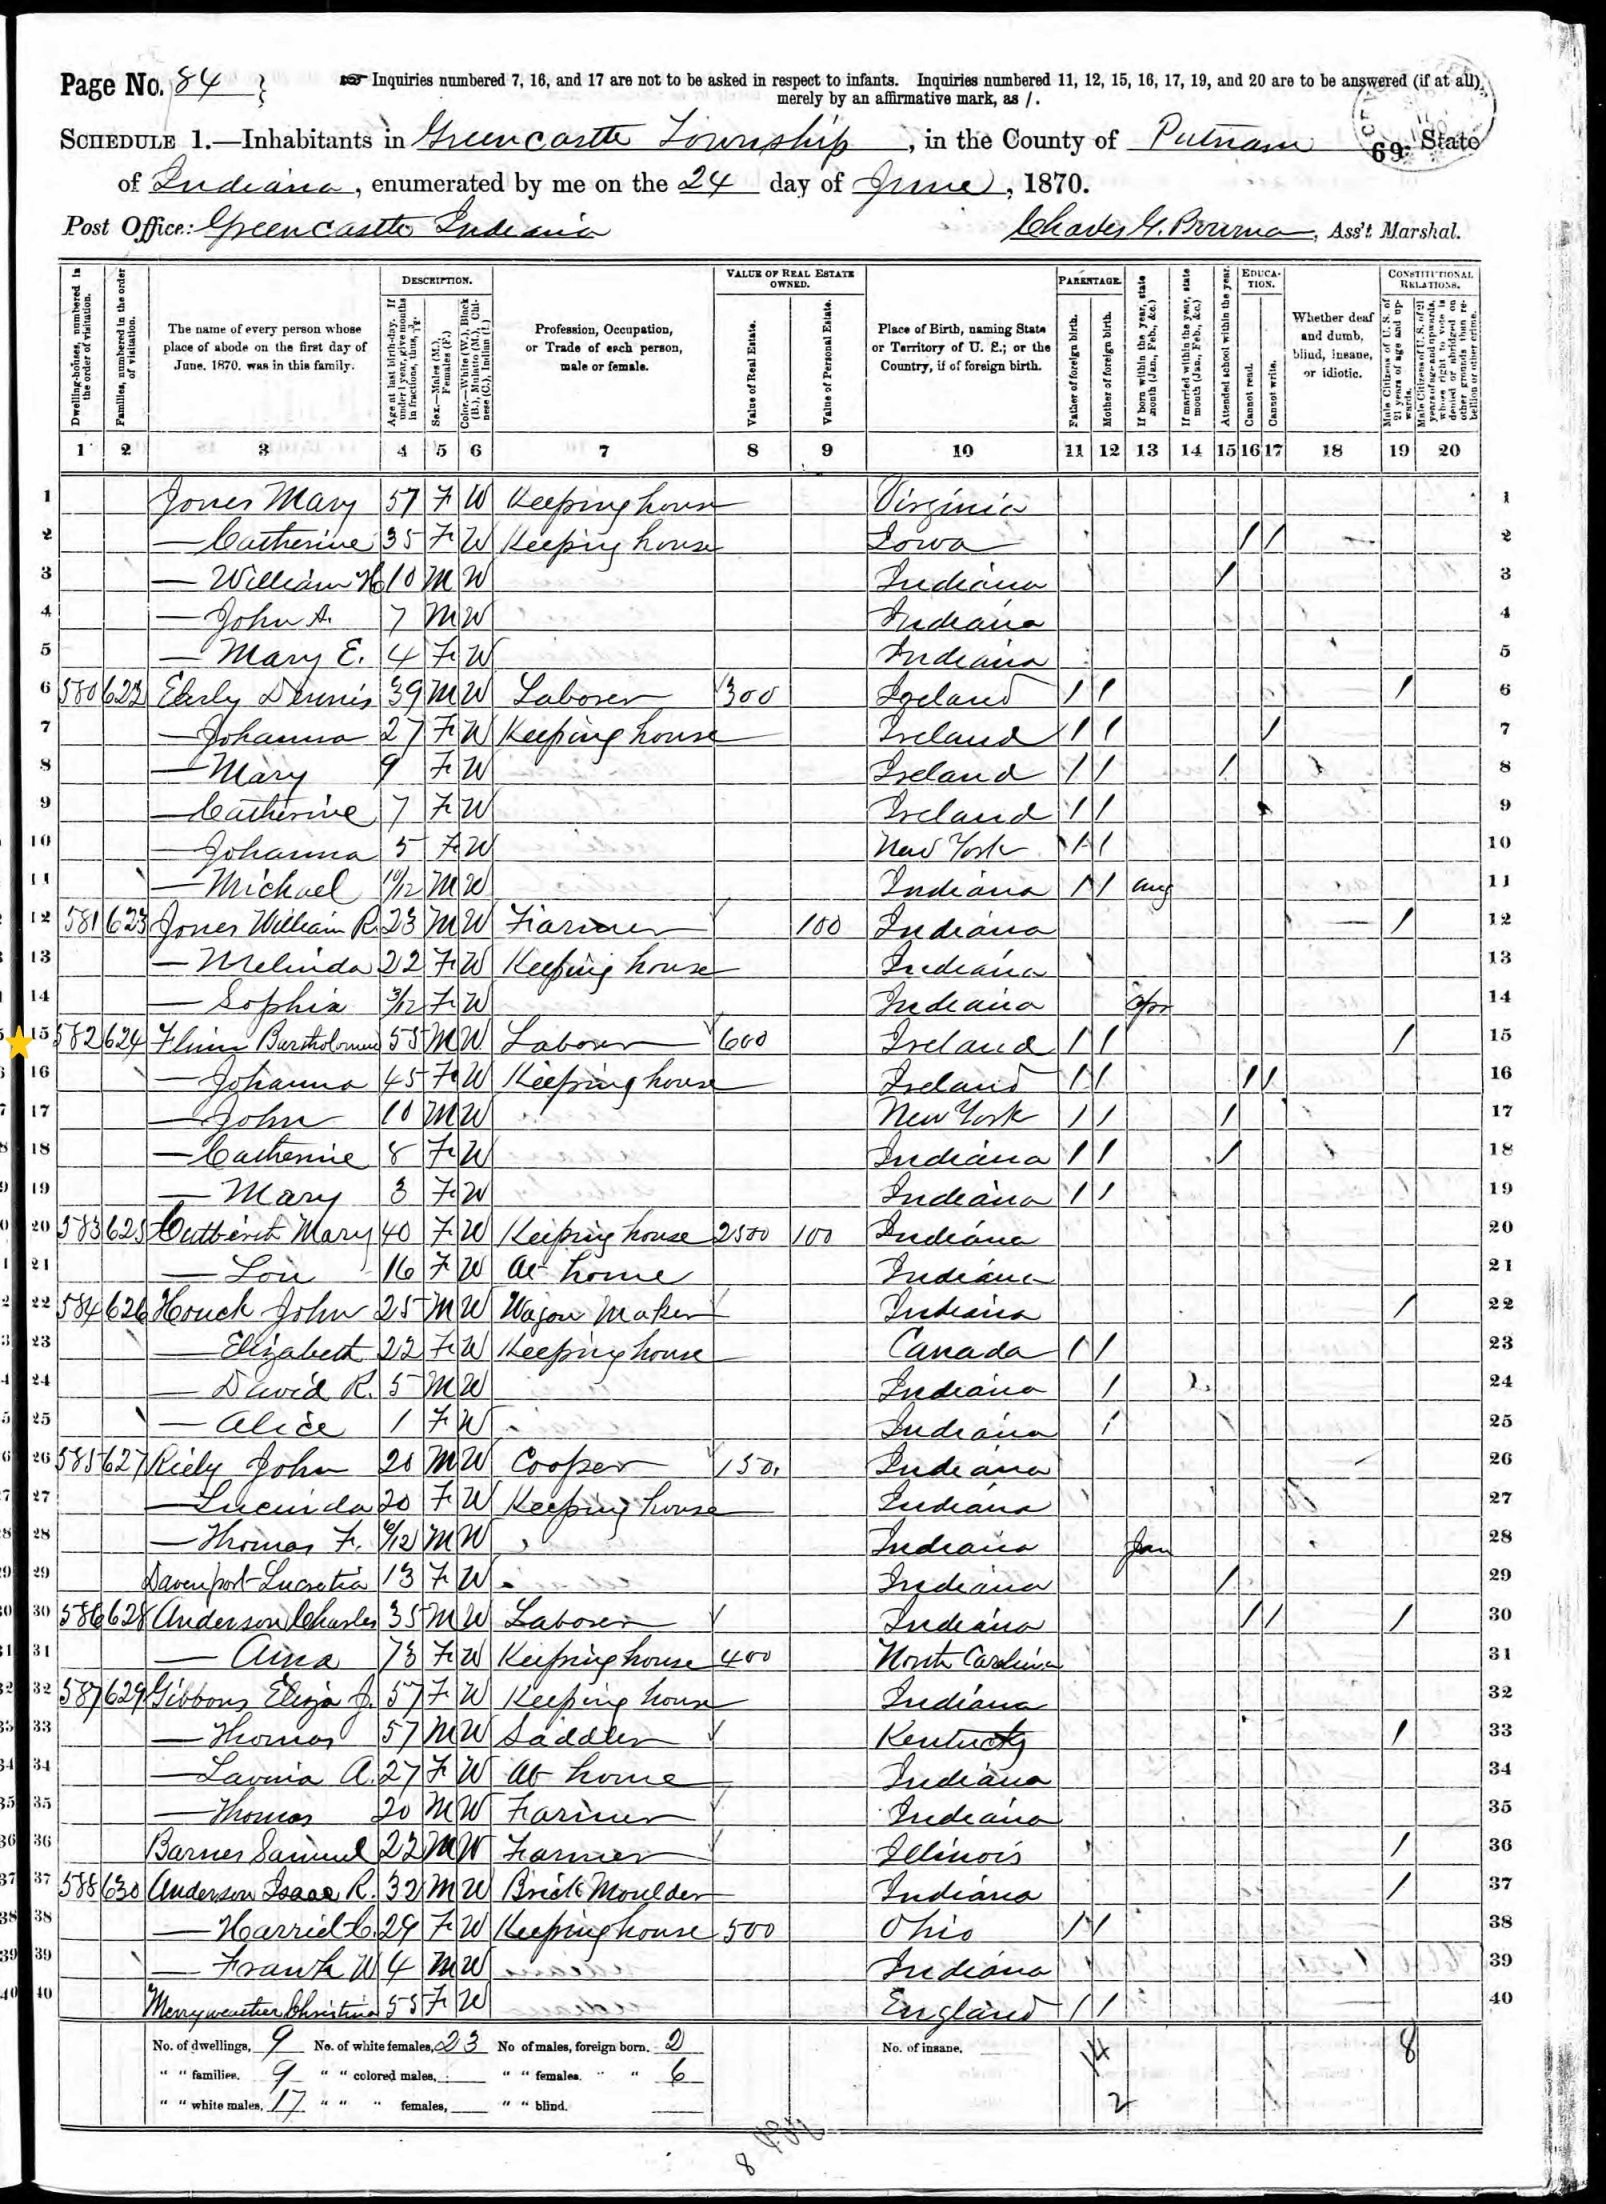 Page No. 84
Inquiries numbered 7, 16, and 17 are not to be asked in respect to infants. Inquiries numbered 11, 12, 15, 16, 17, 19, and 20 are to be answered (if at all)
merely by an affirmative mark, as /.
SCHEDULE 1.—Inhabitants in Greencastle Township, in the County of Putnam State
69
of Indiana, enumerated by me on the 24 day of June, 1870.
Post Office: Greencastle Indiana
Charles G. Bowman, Ass't Marshal.
DESCRIPTION.
VALUE OF REAL ESTATE OWNED.
PARENTAGE.
EDUCATION.
CONSTITUTIONAL RELATIONS.
Dwelling-houses, numbered in the order of visitation.
Families, numbered in the order of visitation.
The name of every person whose place of abode on the first day of June, 1870, was in this family.
Age at last birth-day. If under 1 year, give months in fractions, thus, 3/12.
Sex.—Males (M.), Females (F.)
Color.—White (W.), Black (B.), Mulatto (M.), Chinese (C.), Indian (I.)
Profession, Occupation, or Trade of each person, male or female.
Value of Real Estate.
Value of Personal Estate.
Place of Birth, naming State or Territory of U. S.; or the Country, if of foreign birth.
Father of foreign birth.
Mother of foreign birth.
If born within the year, state month (Jan., Feb., &c.)
If married within the year, state month (Jan., Feb., &c.)
Attended school within the year.
Cannot read.
Cannot write.
Whether deaf and dumb, blind, insane, or idiotic.
Male Citizens of U. S. of 21 years of age and upwards.
Male Citizens of U. S. of 21 years of age and upwards, whose right to vote is denied or abridged on other grounds than rebellion or other crime.
1 2 3 4 5 6 7 8 9 10 11 12 13 14 15 16 17 18 19 20
1 Jones Mary 57 F W Keeping house Virginia 1
2 — Catherine 35 F W Keeping house Iowa / / 2
3 — William H 10 M W Indiana / 3
4 — John A. 7 M W Indiana 4
5 — Mary E. 4 F W Indiana 5
6 580 622 Eberly Dennis 39 M W Laborer 300 Ireland / / / 6
7 — Johanna 27 F W Keeping house Ireland / / / 7
8 — Mary 9 F W Ireland / / / 8
9 — Catherine 7 F W Ireland / / 9
10 — Johanna 5 F W New York / / 10
11 — Michael 10/12 M W Indiana / / Aug 11
12 581 623 Jones William R. 23 M W Farmer 100 Indiana / 12
13 — Melinda 22 F W Keeping house Indiana 13
14 — Sophia 3/12 F W Indiana Apr 14
15 582 624 Flinn Bartholomew 55 M W Laborer 600 Ireland / / / 15
16 — Johanna 45 F W Keeping house Ireland / / / / 16
17 — John 10 M W New York / / / 17
18 — Catherine 8 F W Indiana / / / 18
19 — Mary 3 F W Indiana / / 19
20 583 625 Mary 40 F W Keeping house 2500 100 Indiana 20
21 — Lou 16 F W At home Indiana 21
22 584 626 Houck John 25 M W Wagon Maker Indiana / 22
23 — Elizabeth 22 F W Keeping house Canada / / 23
24 — David R. 5 M W Indiana / 24
25 — Alice 1 F W Indiana / 25
26 585 627 Riely John 20 M W Cooper 150. Indiana 26
27 — Lucinda 20 F W Keeping house Indiana 27
28 — Thomas F. 6/12 M W Indiana Jan 28
29 Davenport Lucretia 13 F W Indiana / 29
30 586 628 Anderson Charles 35 M W Laborer Indiana / / / 30
31 — Aina 73 F W Keeping house 400 North Carolina 31
32 587 629 Gibbons Eliza J. 57 F W Keeping house Indiana 32
33 — Thomas 57 M W Saddler Kentucky / 33
34 — Lavina A. 27 F W At home Indiana 34
35 — Thomas 20 M W Farmer Indiana 35
36 Barnes Samuel 22 M W Farmer Illinois / 36
37 588 630 Anderson Isaac R. 32 M W Brick Moulder Indiana / 37
38 — Harried C. 29 F W Keeping house 500 Ohio / / 38
39 — Frank W 4 M W Indiana 39
40 Merryweather Christina 55 F W England / / 40
No. of dwellings, 9 No. of white females, 23 No of males, foreign born. 2 No. of insane, 14 8
" " families. 9 " " colored males, " " females. " " 6
" " white males, 17 " " " females, " " blind. 2